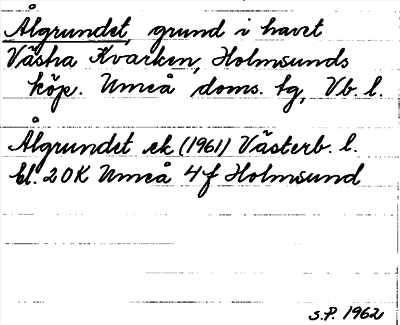 Ålgrundet, grund i havet
Västra Kvarken, Holmsunds
köp. Umeå doms. tg, Vb. l.
Ålgrundet ek (1961) Västerb. l.
bl. 20K Umeå 4f Holmsund
S.P. 1962